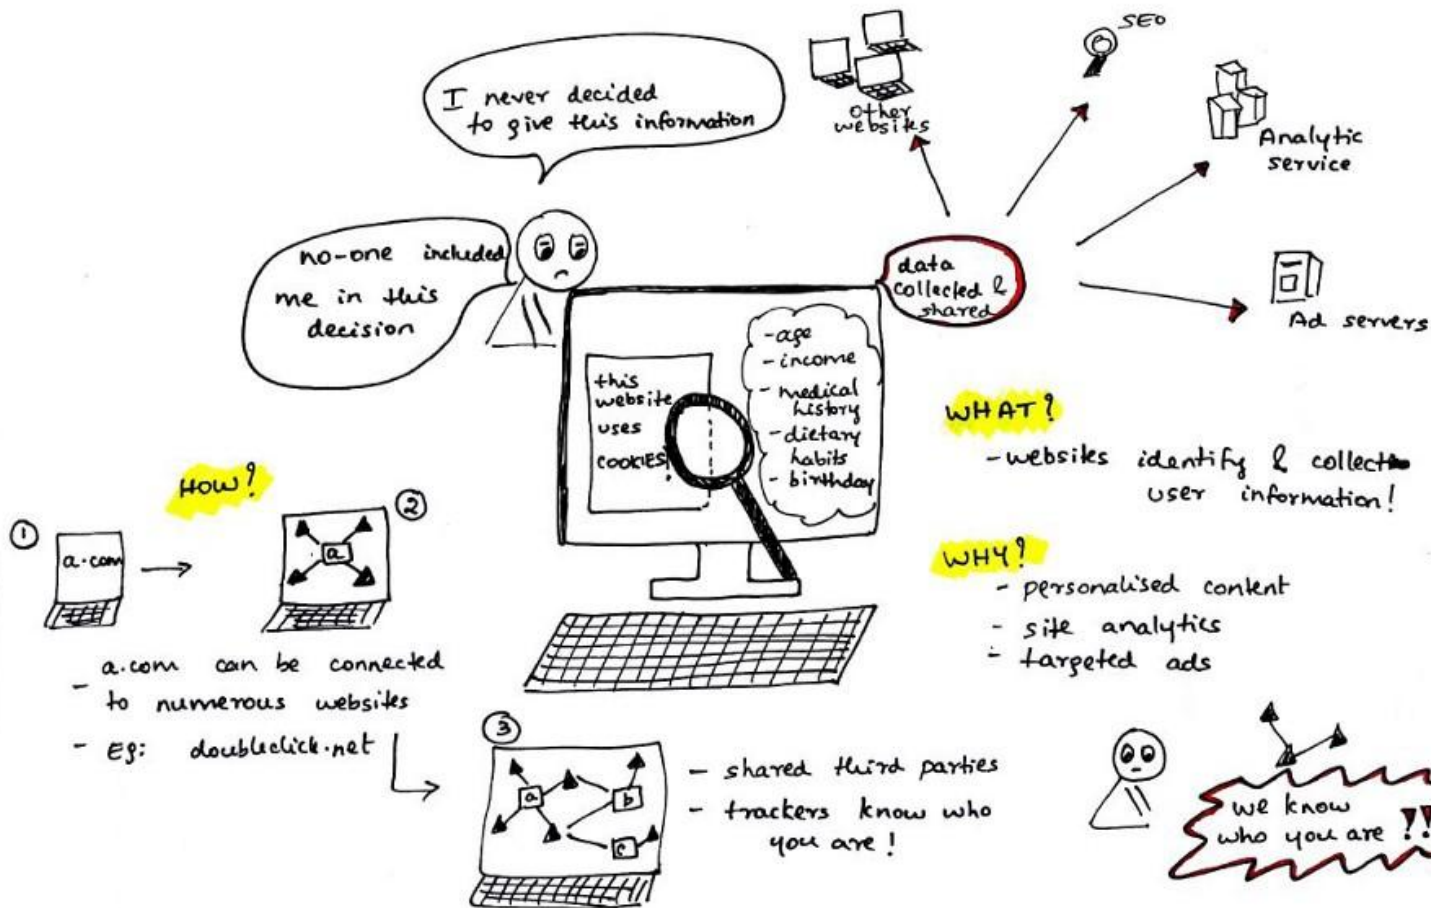 I never decided
to give this information
no-one included
me in this
decision
Other
websites
SEO
Analytic
service
Ad servers
data
collected &
shared
this
website
uses
COOKIES!
- age
- income
- medical
history
- dietary
habits
- birthday
WHAT?
- websites identify & collect
user information!
WHY?
- personalised content
- site analytics
- targeted ads
HOW?
1
a.com
2
a
- a.com can be connected
to numerous websites
- Eg: doubleclick.net
3
a
b
c
- shared third parties
- trackers know who
you are!
we know
who you are !!